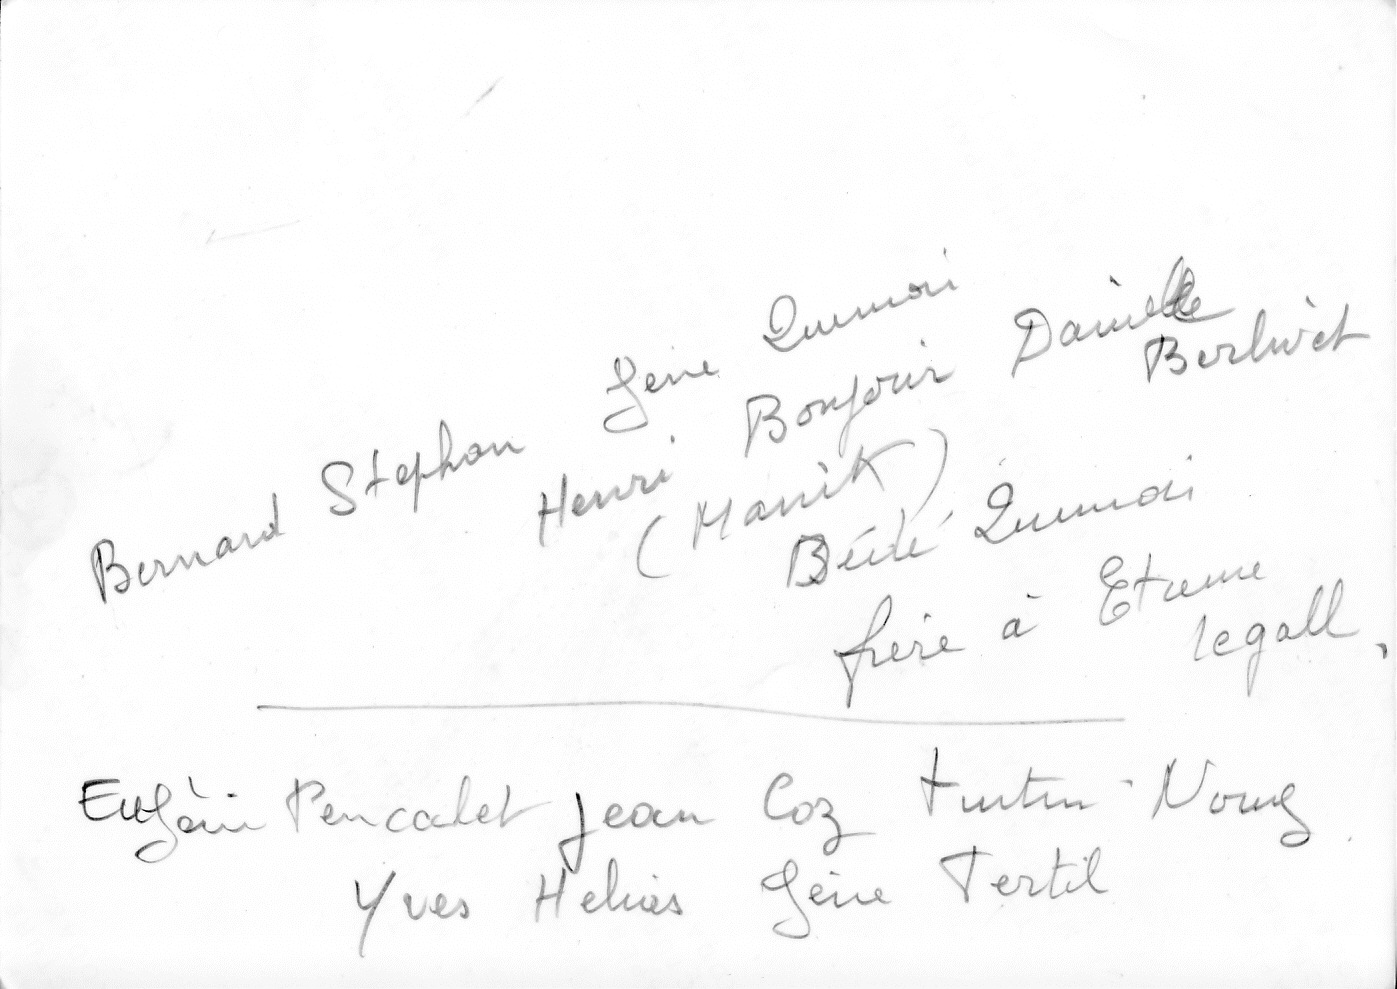 Bernard Stephan Gene Quemari
Henri Bonjour Danielle
Berlivet
(Manik)
Bébé Quemari
frère à Etienne
legall,
Eugène Pencalet Jean Coz tintin Noug
Yves Helias Gène Tertil